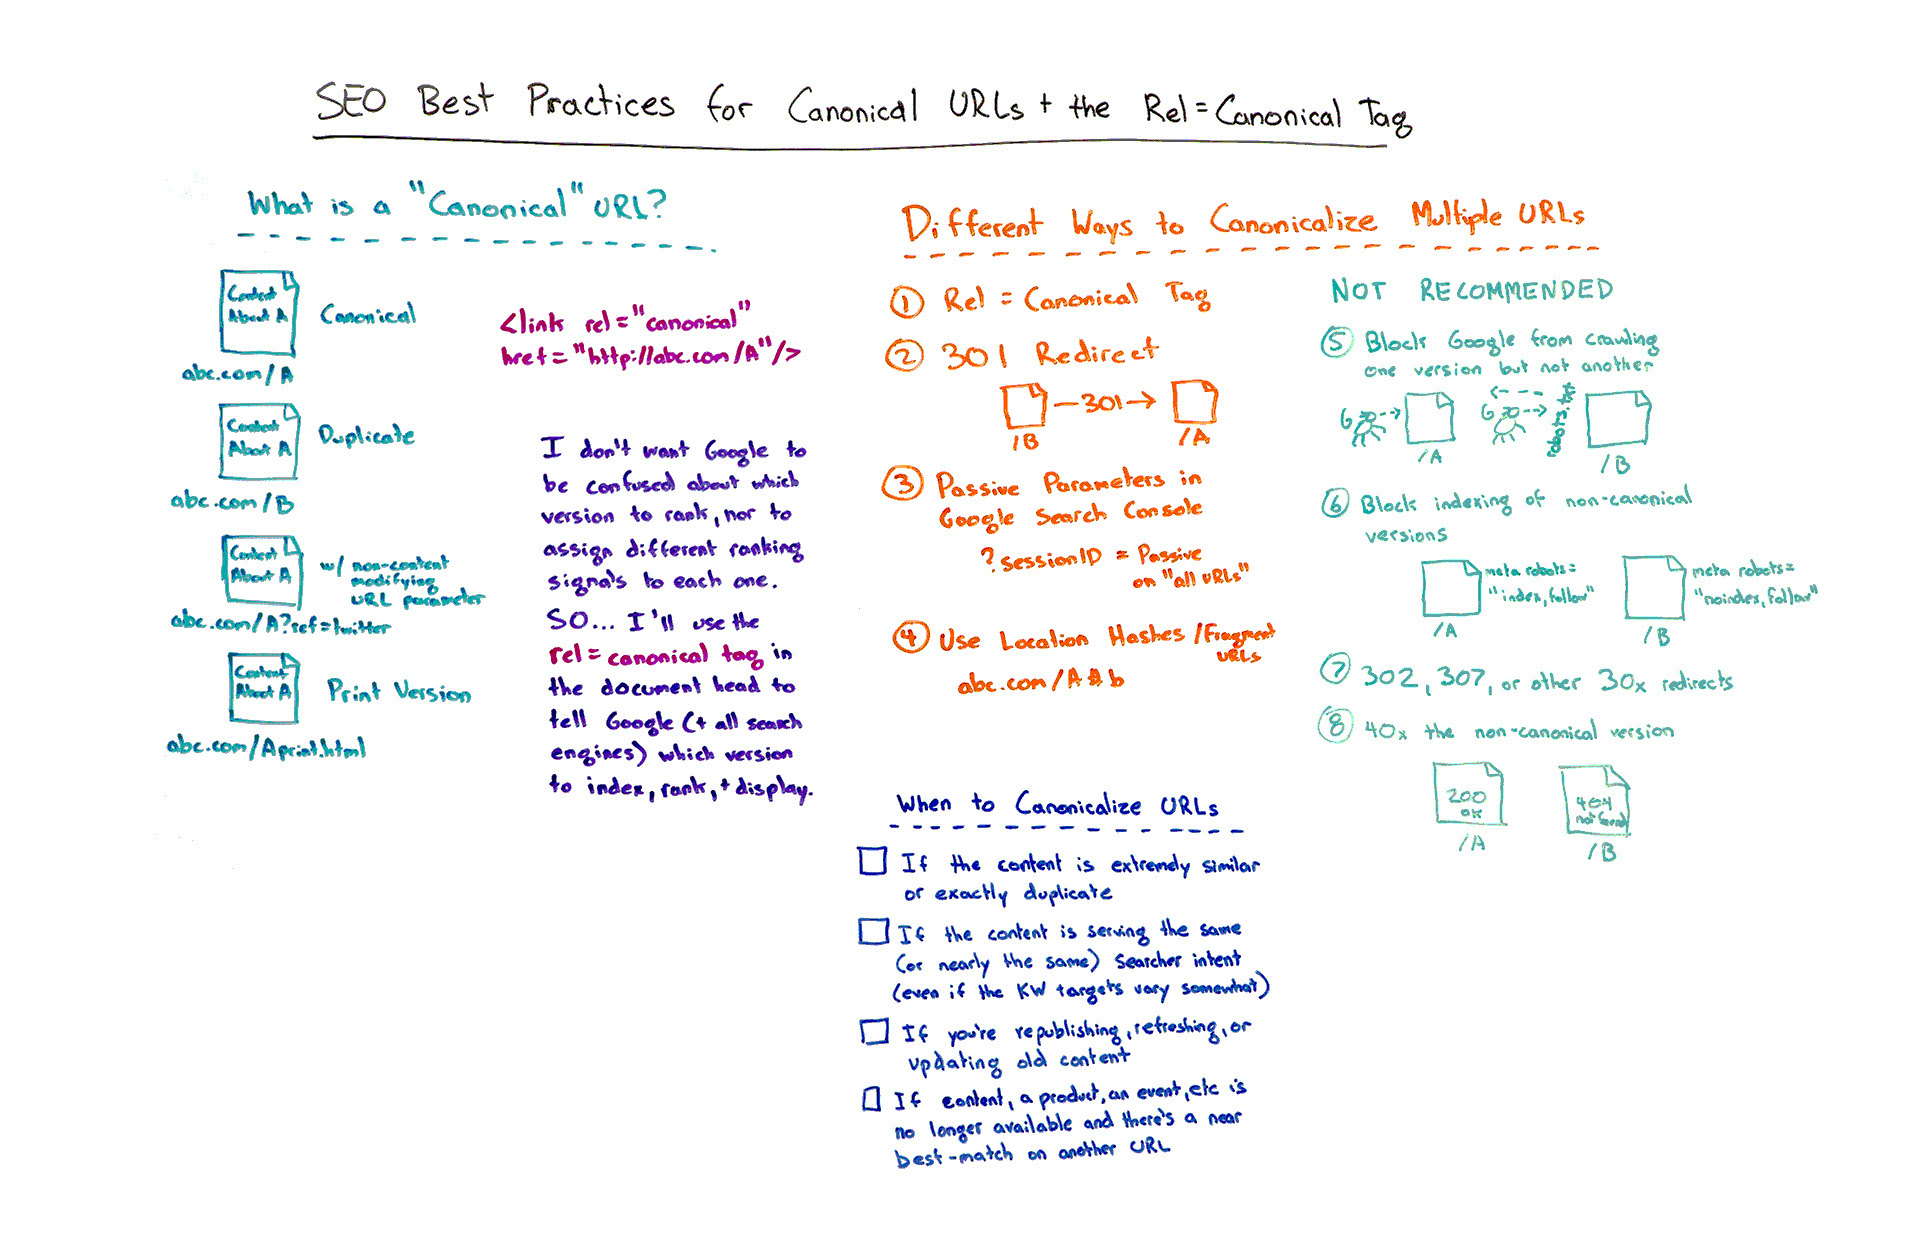 SEO Best Practices for Canonical URLs + the Rel=Canonical Tag
What is a "Canonical" URL?
Content
About A
Canonical
abc.com/A
Content
About A
Duplicate
abc.com/B
Content
About A
w/ non-content
modifying
URL parameter
abc.com/A?ref=twitter
Content
About A
Print Version
abc.com/Aprint.html
<link rel="canonical"
href="http://abc.com/A"/>
I don't want Google to
be confused about which
version to rank, nor to
assign different ranking
signals to each one.
SO... I'll use the
rel=canonical tag in
the document head to
tell Google (+ all search
engines) which version
to index, rank, + display.
Different Ways to Canonicalize Multiple URLs
1 Rel = Canonical Tag
2 301 Redirect
—301→
/B /A
3 Passive Parameters in
Google Search Console
?sessionID = Passive
on "all URLs"
4 Use Location Hashes/Fragment
URLs
abc.com/A#b
NOT RECOMMENDED
5 Block Google from crawling
one version but not another
G G robots.txt
/A /B
6 Block indexing of non-canonical
versions
meta robots=
"index, follow"
/A
meta robots=
"noindex, follow"
/B
7 302, 307, or other 30x redirects
8 40x the non-canonical version
200
OK
/A
404
not found
/B
When to Canonicalize URLs
If the content is extremely similar
or exactly duplicate
If the content is serving the same
(or nearly the same) searcher intent
(even if the KW targets vary somewhat)
If you're republishing, refreshing, or
updating old content
If content, a product, an event, etc is
no longer available and there's a near
best-match on another URL